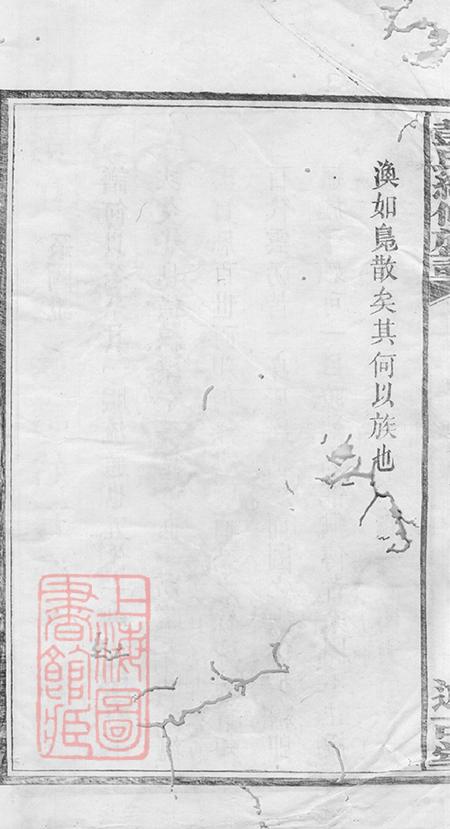 渙如鳧散矣其何以族也
上海圖
書館藏